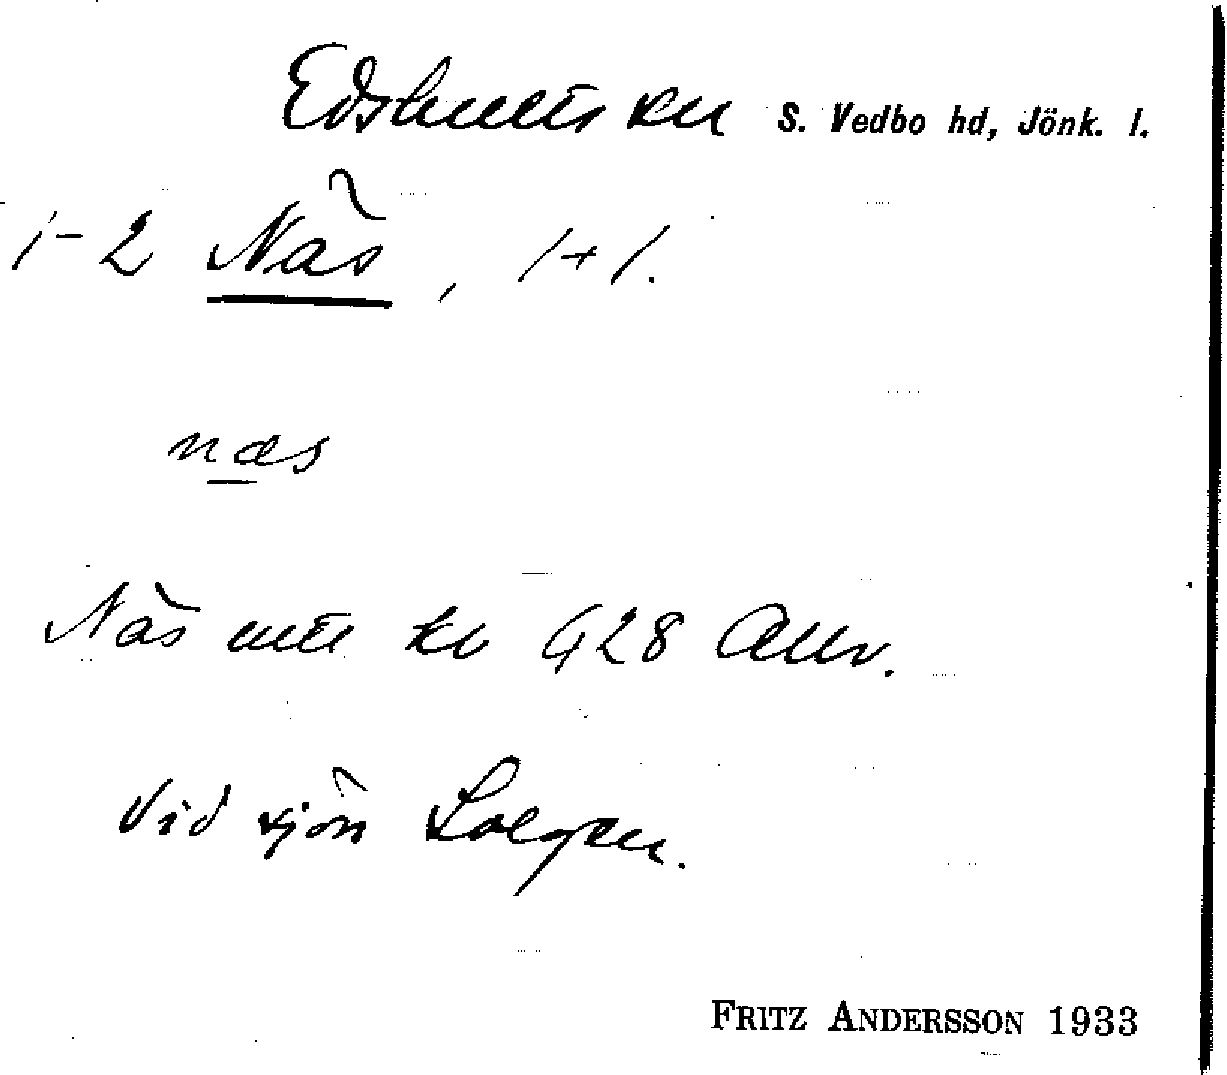 Edshults sn S. Vedbo hd, Jönk. l.
1-2 Näs, 1+1.
næs
Näs kv 428
Vid sjön Solgen.
FRITZ ANDERSSON 1933